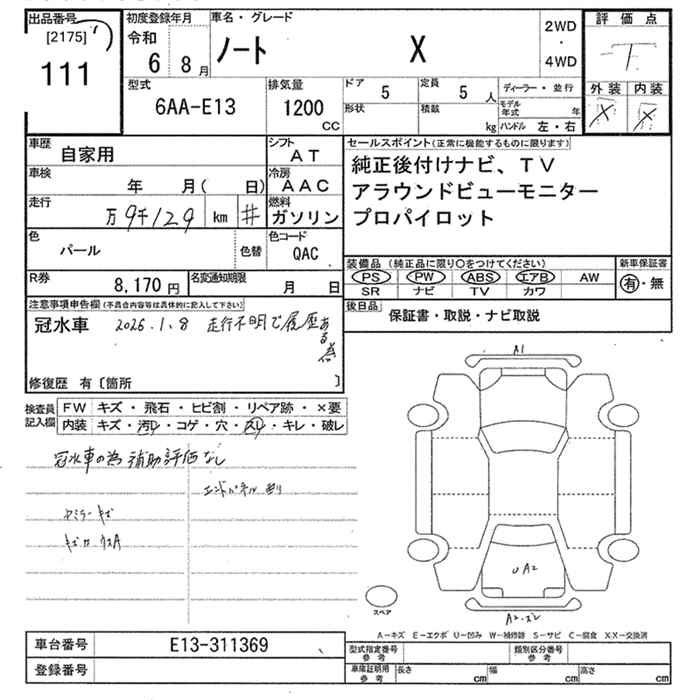 出品番号
[2175]
111
初度登録年月
令和
6 8月
車名・グレード
ノート X
2WD
・
4WD
評価点
外装 内装
X X
型式
6AA-E13
排気量
1200
CC
ドア 5
形状
定員 5 人
積数 kg
ディーラー・並行
モデル年式 年
ハンドル 左・右
車歴
自家用
シフト
AT
車検
年 月( 日)
冷房
AAC
走行
万9千129 km #
燃料
ガソリン
色
パール
色替
色コード
QAC
R券
8,170円
名変通知期限
月 日
セールスポイント(正常に機能するものに限ります)
純正後付けナビ、TV
アラウンドビューモニター
プロパイロット
装備品(純正品に限り○をつけてください)
PS PW ABS エアB AW
SR ナビ TV カワ
新車保証書
有・無
後日品
保証書・取説・ナビ取説
注意事項申告欄(不具合内容等は具体的に記入して下さい)
冠水車 2026.1.8 走行不明で履歴ある為
修復歴 有〔箇所 〕
検査員記入欄
FW キズ・飛石・ヒビ割・リペア跡・×要
内装 キズ・汚レ・コゲ・穴・スレ・キレ・破レ
冠水車の為 補助評価なし
A1
UA2
スペア
A-キズ E-エクボ U-凹み W-補修跡 S-サビ C-腐食 XX-交換済
車台番号 E13-311369
登録番号
型式指定番号
参考
類別区分番号
参考
車庫証明用
参考
長さ cm 幅 cm 高さ cm